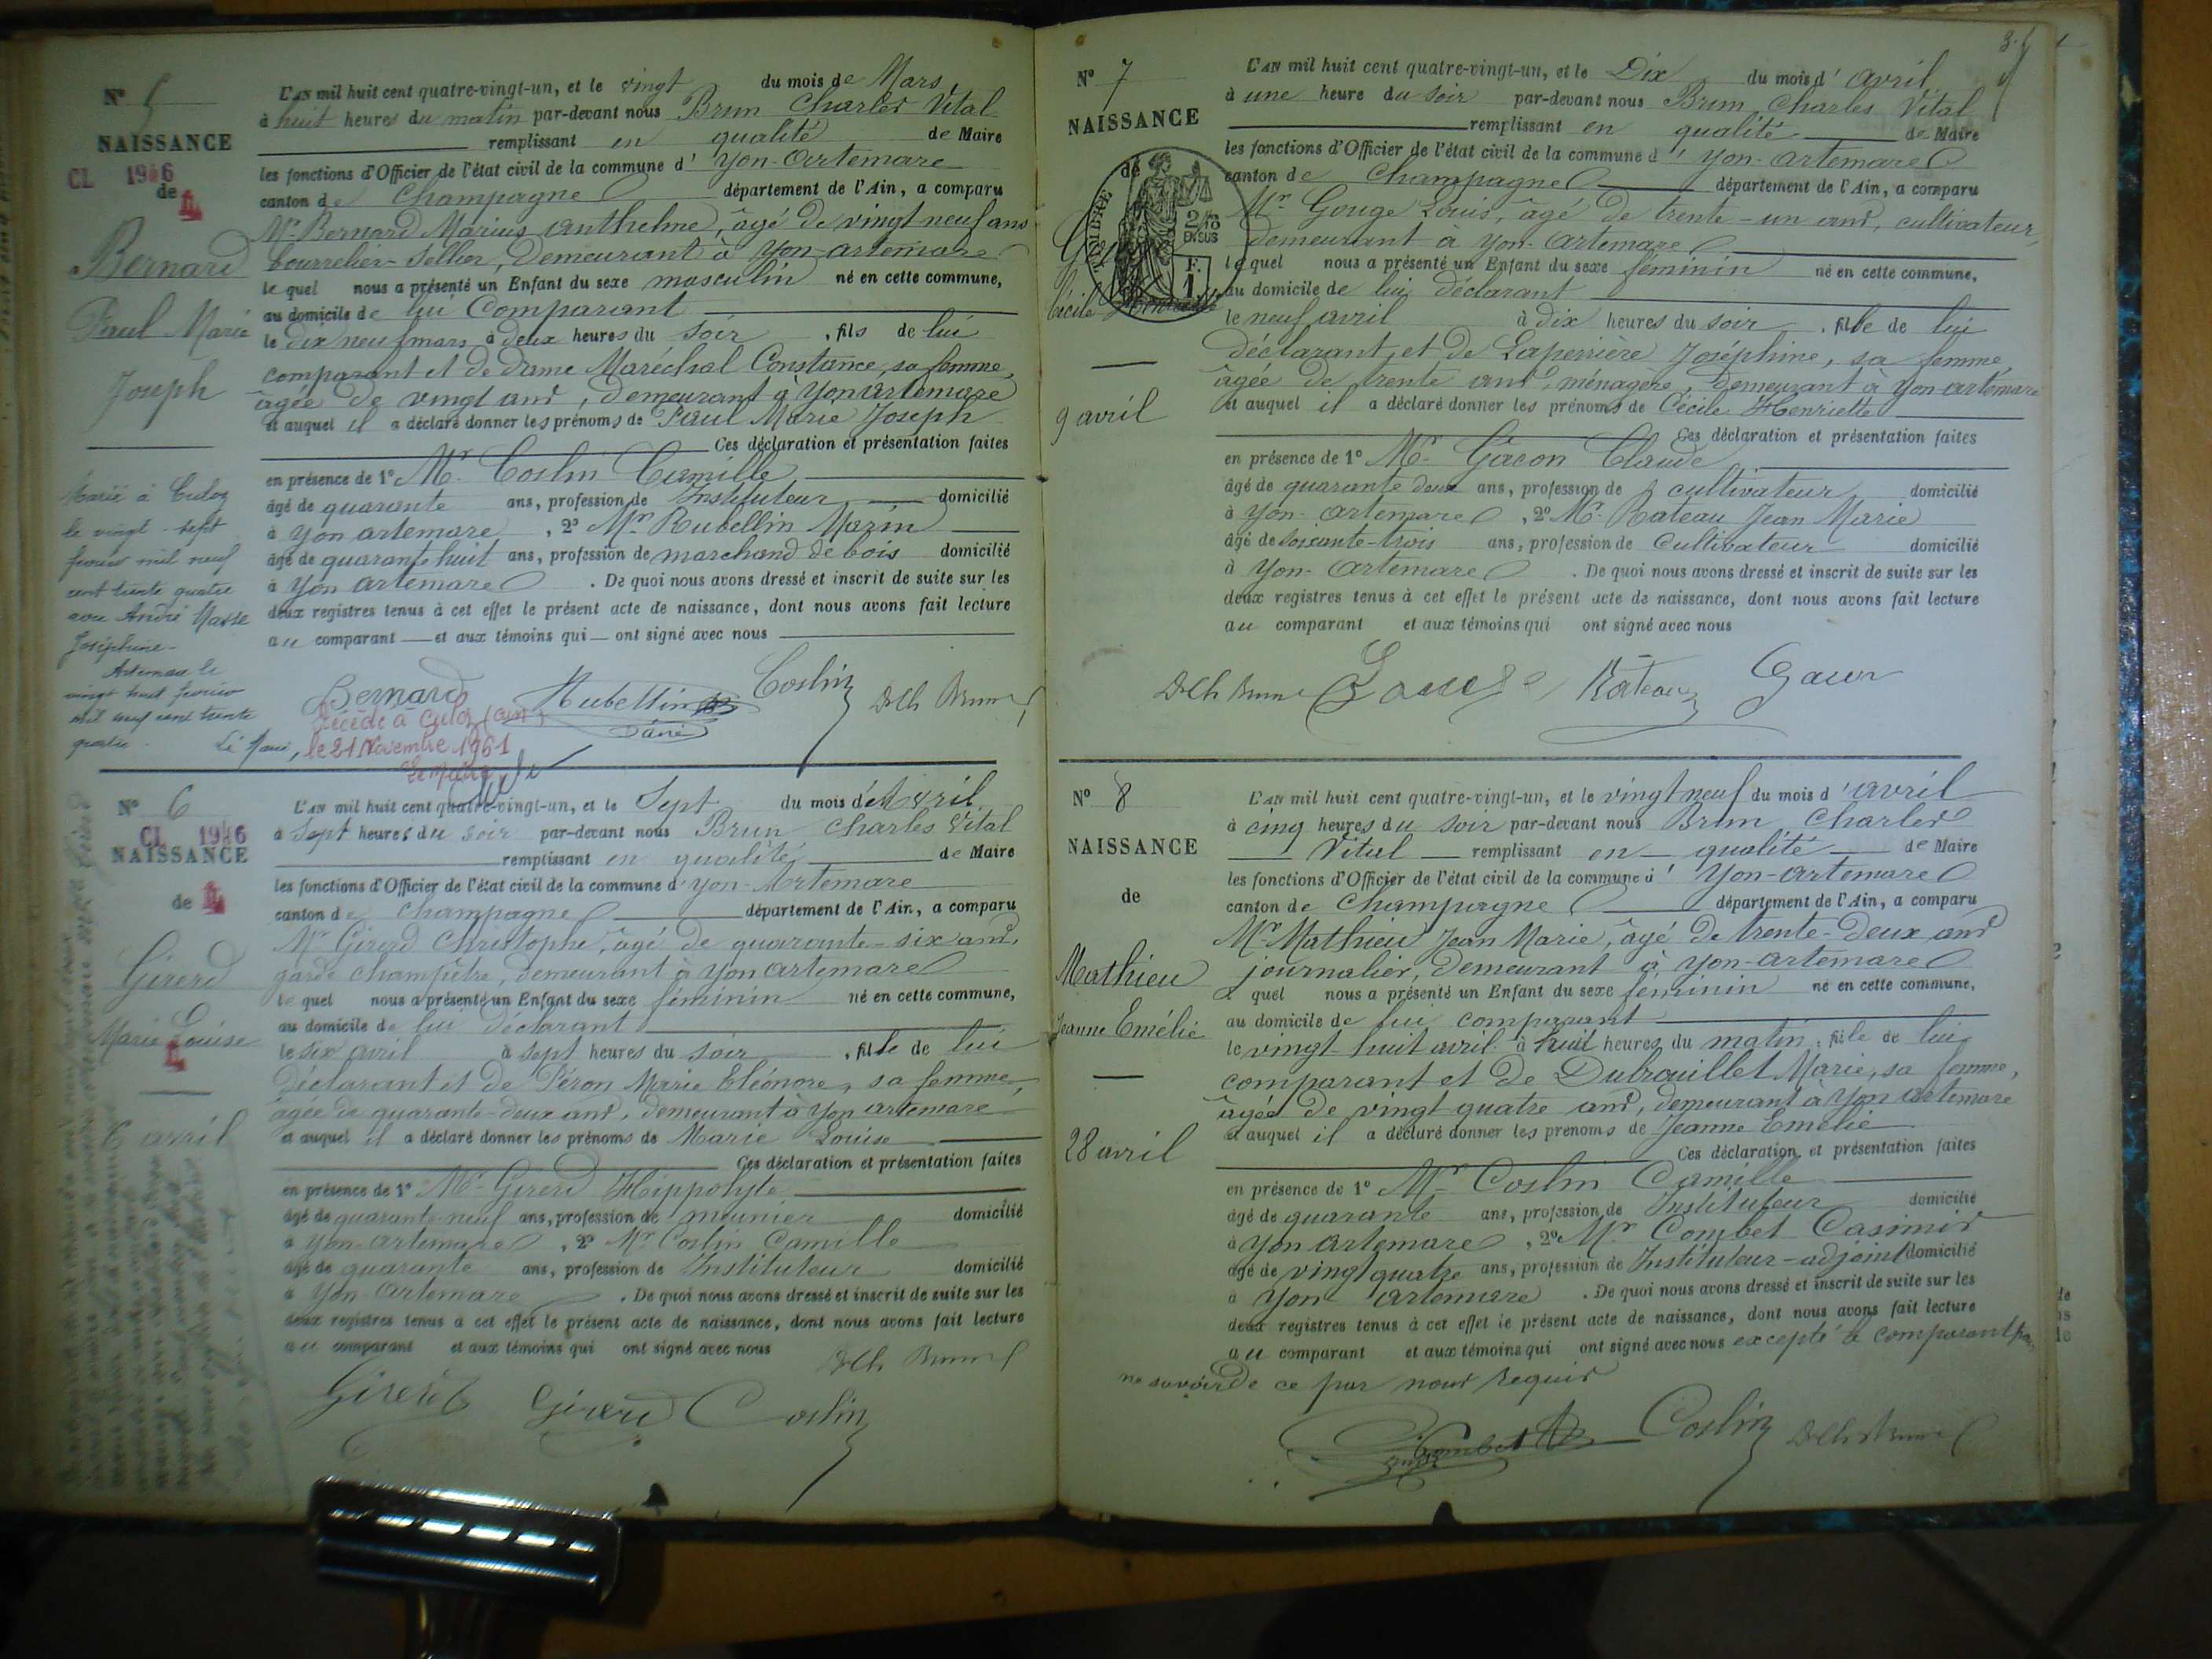 N° 5
NAISSANCE
CL 1946
de
Bernard
Paul Marie
Joseph
Marié à Culoz
le vingt-sept
février mil neuf
cent trente quatre
avec André
Joséphine
Artemare le
vingt huit février
mil neuf cent trente
quatre. Le Maire,
L'AN mil huit cent quatre-vingt-un, et le vingt du mois de Mars
à huit heures du matin par-devant nous Brun Charles Vital
remplissant en qualité de Maire
les fonctions d'Officier de l'état civil de la commune d' Yon-Artemare
canton de Champagne département de l'Ain, a comparu
Mr Bernard Marius Anthelme, âgé de vingt neuf ans
bourrelier-Sellier, demeurant à Yon-artemare
lequel nous a présenté un Enfant du sexe masculin né en cette commune,
au domicile de lui Comparant
le dix neuf mars à deux heures du soir, fils de lui
comparant et de dame Maréchal Constance sa femme,
âgée de vingt ans, demeurant à Yon artemare
et auquel il a déclaré donner les prénoms de Paul Marie Joseph
Ces déclaration et présentation faites
en présence de 1° Mr Coslin Camille
âgé de quarante ans, profession de Instituteur domicilié
à Yon artemare, 2° Mr Rubellin Marin
âgé de quarante huit ans, profession de marchand de bois domicilié
à Yon artemare. De quoi nous avons dressé et inscrit de suite sur les
deux registres tenus à cet effet le présent acte de naissance, dont nous avons fait lecture
au comparant et aux témoins qui ont signé avec nous
Bernard Rubellin Coslin Brun
Décédé à Culoz (ain)
le 21 Novembre 1961
Le Maire
N° 6
CL 1946
NAISSANCE
de
Girerd
Marie Louise
6 avril
L'AN mil huit cent quatre-vingt-un, et le Sept du mois d'Avril
à Sept heures du soir par-devant nous Brun Charles Vital
remplissant en qualité de Maire
les fonctions d'Officier de l'état civil de la commune d' Yon-Artemare
canton de Champagne département de l'Ain, a comparu
Mr Girerd Christophe, âgé de quarante-six ans,
garde champêtre, demeurant à Yon artemare
lequel nous a présenté un Enfant du sexe féminin né en cette commune,
au domicile de lui déclarant
le six avril à sept heures du soir, fille de lui
déclarant et de Péron Marie Eléonore, sa femme,
âgée de quarante-deux ans, demeurant à Yon artemare
et auquel il a déclaré donner les prénoms de Marie Louise
Ces déclaration et présentation faites
en présence de 1° Mr Girerd Hippolyte
âgé de quarante-neuf ans, profession de meunier domicilié
à Yon-Artemare, 2° Mr Coslin Camille
âgé de quarante ans, profession de Instituteur domicilié
à Yon-Artemare. De quoi nous avons dressé et inscrit de suite sur les
deux registres tenus à cet effet le présent acte de naissance, dont nous avons fait lecture
au comparant et aux témoins qui ont signé avec nous
Brun
Girerd Girerd Coslin
N° 7
NAISSANCE
de
TIMBRE
2/10
EN SUS
F.
1
Cécile Henriette
9 avril
L'AN mil huit cent quatre-vingt-un, et le Dix du mois d' avril
à une heure du soir par-devant nous Brun Charles Vital
remplissant en qualité de Maire
les fonctions d'Officier de l'état civil de la commune d' Yon-artemare
canton de Champagne département de l'Ain, a comparu
Mr Gouge Louis, âgé de trente-un ans, cultivateur,
demeurant à Yon-Artemare
lequel nous a présenté un Enfant du sexe féminin né en cette commune,
au domicile de lui déclarant
le neuf avril à dix heures du soir, fille de lui
déclarant et de Laperrière Joséphine, sa femme,
âgée de trente ans, ménagère, demeurant à Yon artemare
et auquel il a déclaré donner les prénoms de Cécile Henriette
Ces déclaration et présentation faites
en présence de 1° Mr Gacon Claude
âgé de quarante deux ans, profession de cultivateur domicilié
à Yon-artemare, 2° Mr Rateau Jean Marie
âgé de soixante-trois ans, profession de Cultivateur domicilié
à Yon-Artemare. De quoi nous avons dressé et inscrit de suite sur les
deux registres tenus à cet effet le présent acte de naissance, dont nous avons fait lecture
au comparant et aux témoins qui ont signé avec nous
Brun Gouge Rateau Gacon
N° 8
NAISSANCE
de
Mathieu
Jeanne Emélie
28 avril
L'AN mil huit cent quatre-vingt-un, et le vingt neuf du mois d' avril
à cinq heures du soir par-devant nous Brun Charles
Vital remplissant en qualité de Maire
les fonctions d'Officier de l'état civil de la commune d' Yon-artemare
canton de Champagne département de l'Ain, a comparu
Mr Mathieu Jean Marie, âgé de trente-deux ans
journalier, demeurant à Yon-artemare
lequel nous a présenté un Enfant du sexe féminin né en cette commune,
au domicile de lui comparant
le vingt-huit avril à huit heures du matin, fille de lui
comparant et de Dubrouillet Marie, sa femme,
âgée de vingt quatre ans, demeurant à Yon artemare
et auquel il a déclaré donner les prénoms de Jeanne Emélie
Ces déclaration et présentation faites
en présence de 1° Mr Coslin Camille
âgé de quarante ans, profession de Instituteur domicilié
à Yon artemare, 2° Mr Combet Casimir
âgé de vingt quatre ans, profession de Instituteur-adjoint domicilié
à Yon-artemare. De quoi nous avons dressé et inscrit de suite sur les
deux registres tenus à cet effet le présent acte de naissance, dont nous avons fait lecture
au comparant et aux témoins qui ont signé avec nous excepté le comparant pour
ne savoir de ce par nous requis
Combet Coslin Brun